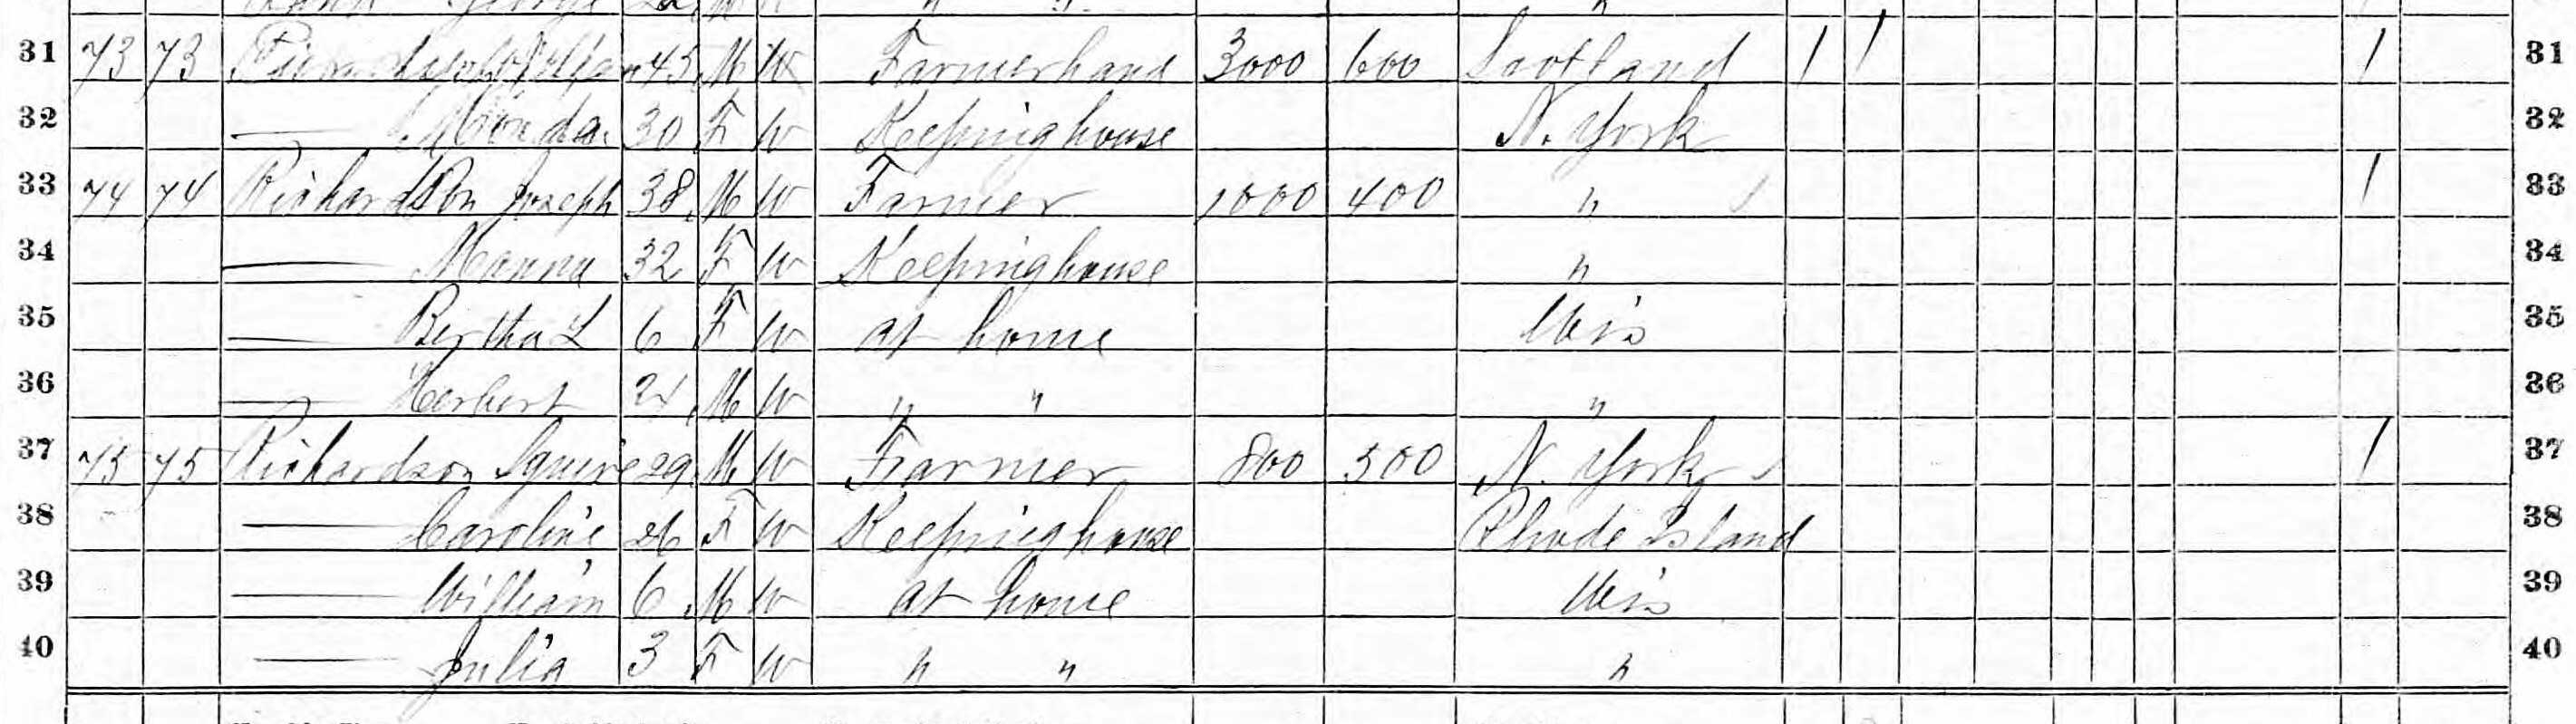 31 73 73 45 M W Farmerhand 3000 600 Scotland 1 1 1 31
32 — 30 F W Keepinghouse N. York 32
33 74 74 Richardson Joseph 38 M W Farmer 1000 400 " 1 33
34 — 32 F W Keepinghouse " 34
35 — Bertha L 6 F W at home Wis 35
36 — Herbert M W " " " 36
37 75 75 Richardson Squire 29 M W Farmer 800 500 N. York 1 37
38 — Caroline 26 F W Keepinghouse Rhode Island 38
39 — William 6 M W at home Wis 39
40 — Julia 3 F W " " " 40